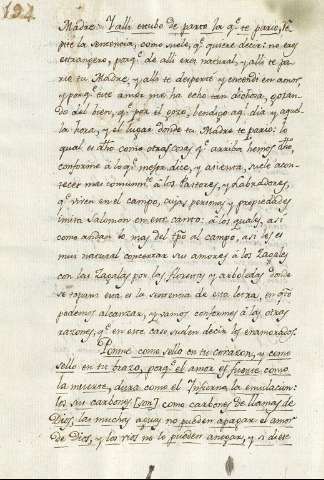 194
Madre: Y alli estubo de parto la q.e te pario, Re-
pite la sentencia, como suele, q.e quiere decir: no eres
estrangero, porq.e de alli eres natural, y alli te pa-
rio tu Madre, y alli te desperte y encendi en amor,
y porq.e este amor me ha echo tan dichosa, gozan-
do del bien, q.e por el gozo, bendigo aq.l dia y aque-
lla hora, y el lugar donde tu Madre te pario: lo
qual es dho como otras cosas q.e arriba hemos dho,
conforme à lo q.e mejor dice, y asienta, suele acon-
tecer mas comunm.te à los Pastores, y Labradores,
q.e viven en el campo, cuias personas y propiedades
imita Salomon en este canto: à los quales, asi
como andan lo mas del tpo al campo, asi les es
mui natural concertar sus amores à los Zagales
con las Zagalas por las florestas y arboledas donde
se topan: esta es la sentencia de esta letra, en q.to
podemos alcanzar, y vamos conformes à las otras
razones, q.e en este caso suelen decir los enamorados.
Ponme como sello en tu corazon, y como
sello en tu brazo, porq.e el amor es fuerte como
la muerte, dura como el Infierno la emulacion:
los sus carbones [son] como carbones de llamas de
Dios, las muchas aguas no pueden apagar el amor
de Dios, y los rios no lo pueden anegar, y si diese